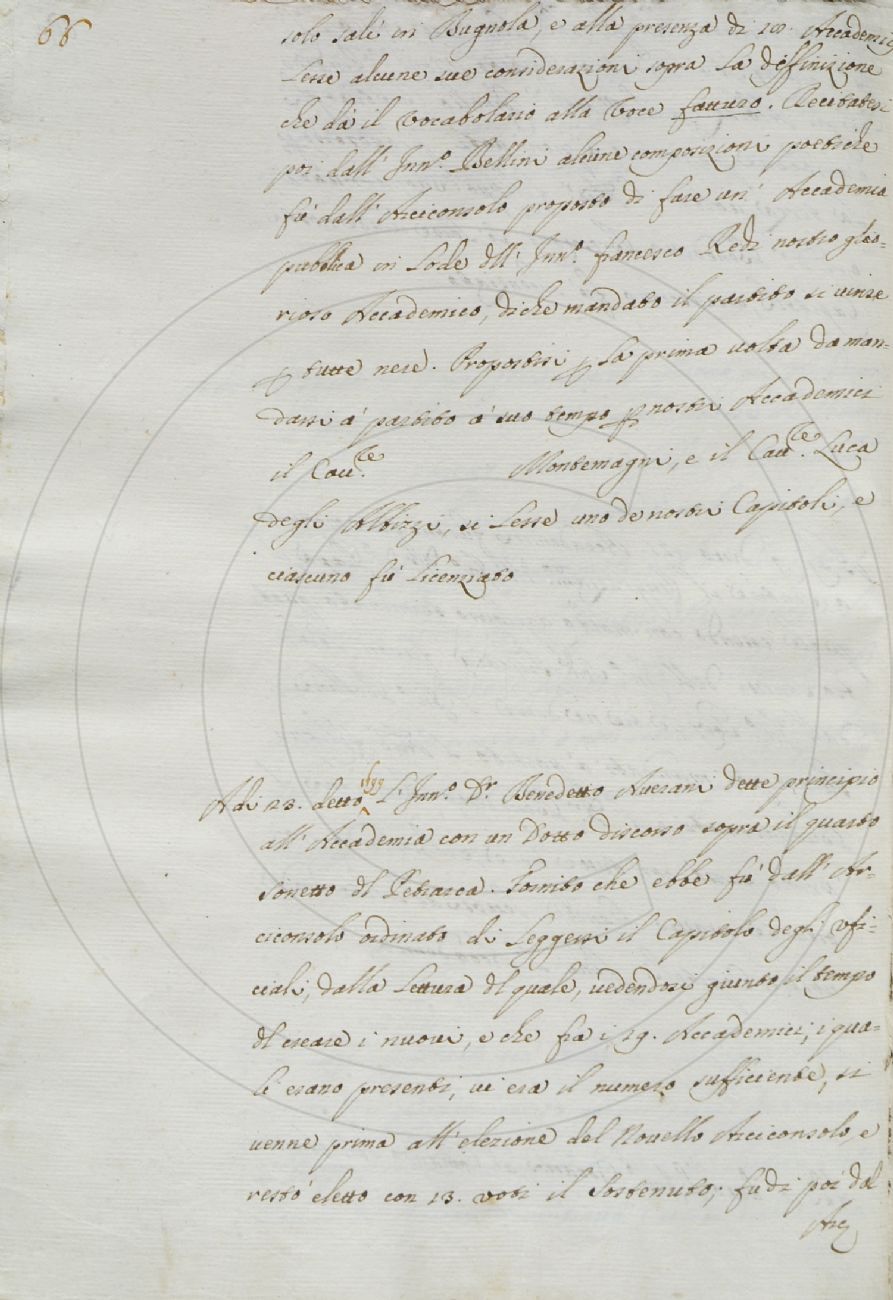 66
solo salì in Bugnola, e alla presenza di 18. Accademici
lesse alcune sue considerazioni sopra la diffinizione
che dà il vocabolario alla voce fatturo. Recitatesi
poi dall' Inn.º Bellini alcune composizioni poetiche
fù dall' Arciconsolo proposto di fare un' Accademia
pubblica in lode dll' Inn.º francesco Redi nostro glo-
rioso Accademico, di che mandato il partito si vinse
p tutte nere. Propostisi p la prima volta da man-
darsi a' partito a' suo tempo p nostri Accademici
il Cau.re Montemagni, e il Cau.re Luca
degli Albizzi, si lesse uno de nostri Capitoli, e
ciascuno fù licenziato
Adi 23. detto 1699 L'Inn.º Dr. Benedetto Auerani dette principio
all' Accademia con un Dotto discorso sopra il quarto
sonetto dl Petrarca. Fornito che ebbe fù dall' Ar-
ciconsolo ordinato di leggersi il Capitolo degli ufi-
ciali, dalla lettura dl quale, uedendosi giunto il tempo
dl creare i nuoui, e che fra i 19. Accademici, i qua-
li erano presenti, ui era il numero sufficiente, si
uenne prima all' elezione del Nouello Arciconsolo, e
restò eletto con 13. voti il Sostenuto; fu di poi dal
Arc